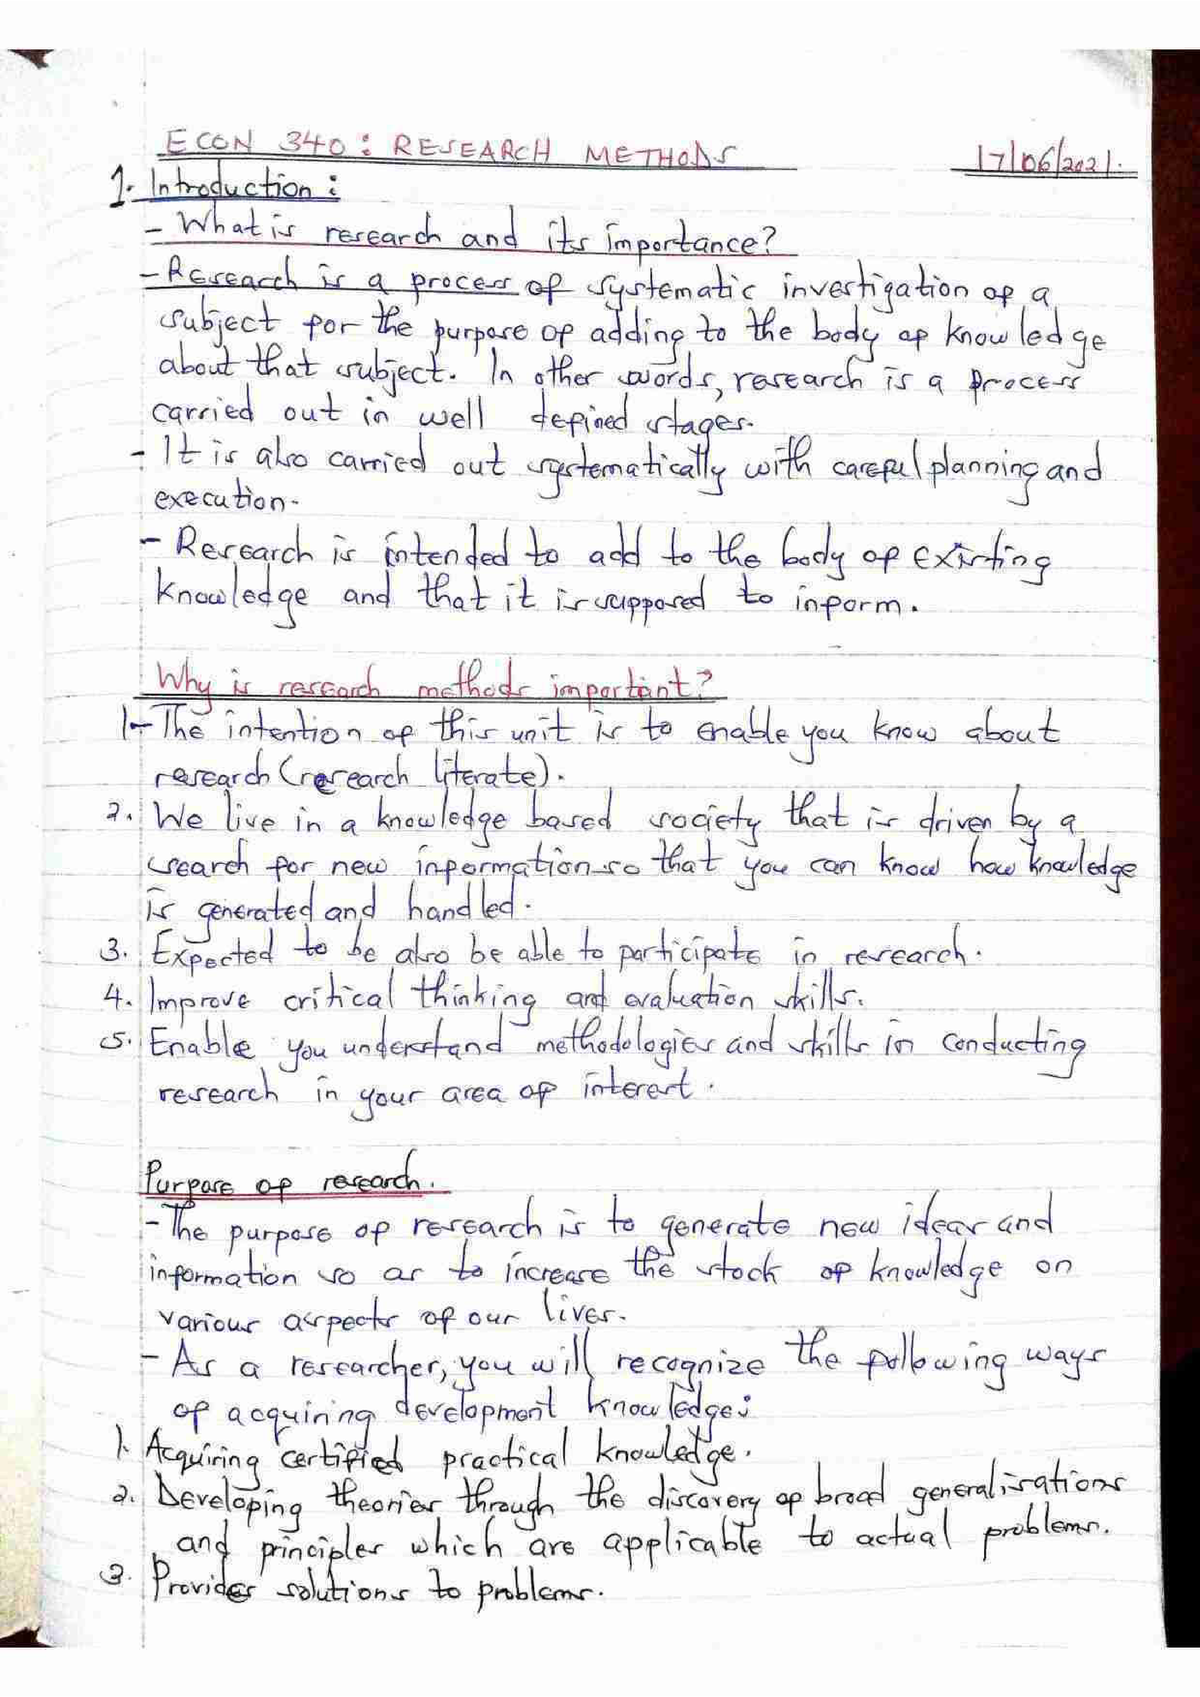 ECON 340: RESEARCH METHODS 17/06/2021.
1. Introduction:
- What is research and its importance?
- Research is a process of systematic investigation of a
subject for the purpose of adding to the body of knowledge
about that subject. In other words, research is a process
carried out in well defined stages.
- It is also carried out systematically with careful planning and
execution.
- Research is intended to add to the body of existing
knowledge and that it is supposed to inform.
Why is research methods important?
1- The intention of this unit is to enable you know about
research (research literate).
2. We live in a knowledge based society that is driven by a
search for new information so that you can know how knowledge
is generated and handled.
3. Expected to be also be able to participate in research.
4. Improve critical thinking and evaluation skills.
5. Enable you understand methodologies and skills in conducting
research in your area of interest.
Purpose of research.
- The purpose of research is to generate new ideas and
information so as to increase the stock of knowledge on
various aspects of our lives.
- As a researcher, you will recognize the following ways
of acquiring development knowledge:
1. Acquiring certified practical knowledge.
2. Developing theories through the discovery of broad generalisations
and principles which are applicable to actual problems.
3. Provides solutions to problems.